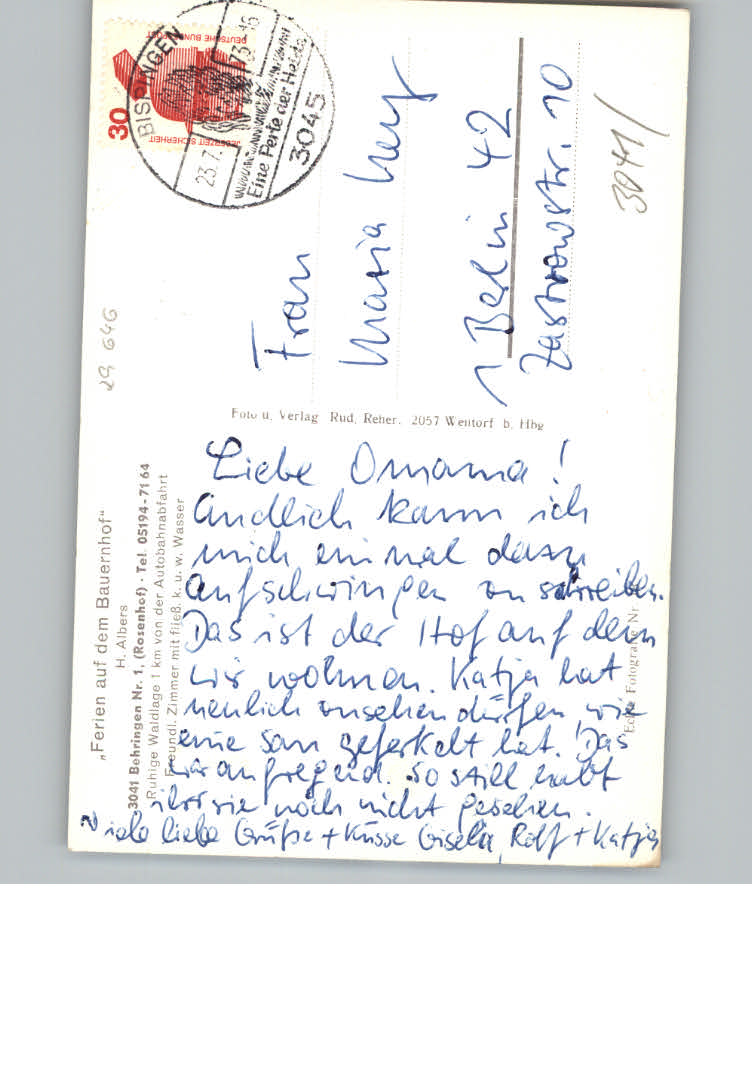 „Ferien auf dem Bauernhof"
H. Albers
3041 Behringen Nr. 1, (Rosenhof) · Tel. 05194-7164
Ruhige Waldlage 1 km von der Autobahnabfahrt
Freundl. Zimmer mit fließ. k. u. w. Wasser
Liebe Omama!
Endlich kann ich
mich einmal dazu
aufschwingen zu schreiben.
Das ist der Hof auf dem
wir wohnen. Katja hat
neulich zusehen dürfen, wie
eine Sau geferkelt hat. Das
war aufregend. So still habt
ihr sie noch nicht gesehen.
Viele liebe Grüße + Küsse Gisela, Rolf + Katja
Foto u. Verlag Rud. Reher. 2057 Wentorf b. Hbg
Echte Fotografie Nr
29 646
DEUTSCHE BUNDESPOST
JEDERZEIT SICHERHEIT
30
BISPINGEN
23.7.73-16
Eine Perle der Heide
3045
Frau
Maria
1 Berlin 42
Zastrowstr. 10
3041/